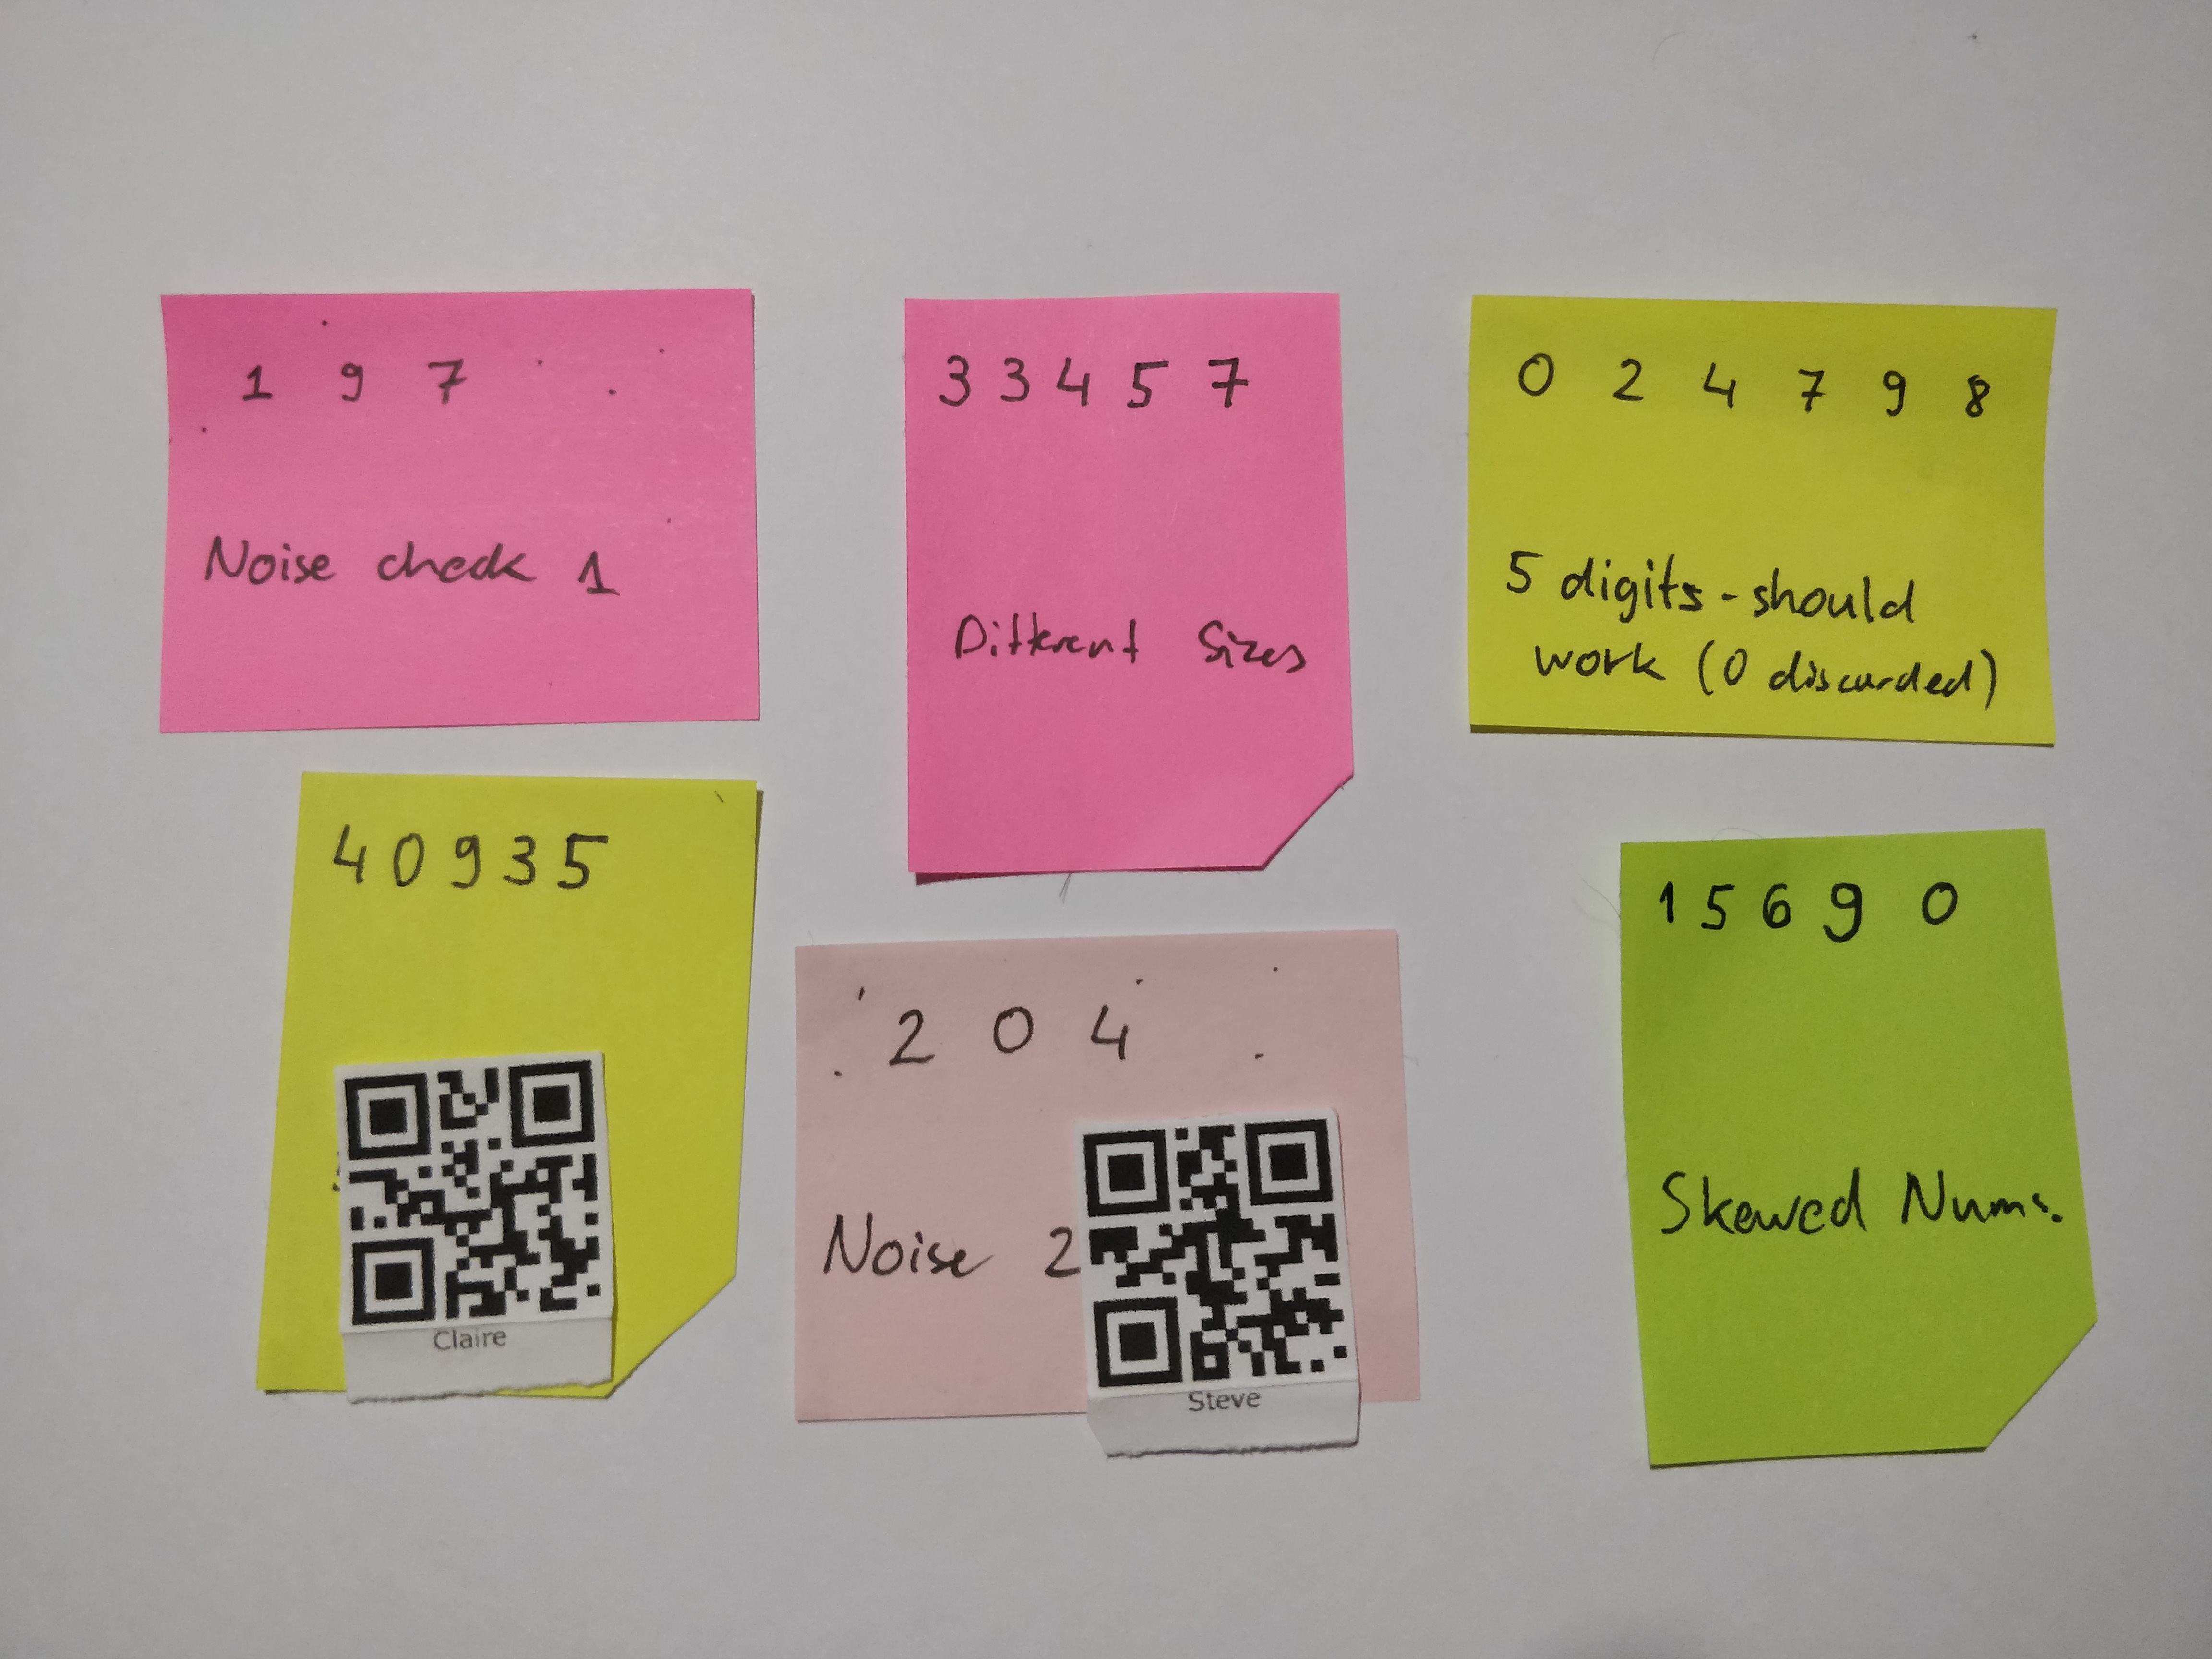 1 9 7
Noise check 1
3 3 4 5 7
Different Sizes
0 2 4 7 9 8
5 digits - should
work (0 discarded)
4 0 9 3 5
Claire
2 0 4
Noise 2
Steve
1 5 6 9 0
Skewed Nums.